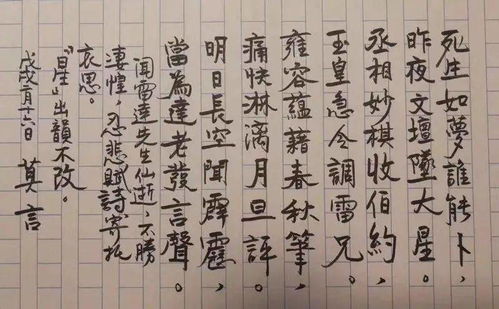 死生如夢誰能卜，
昨夜文壇墜大星。
丞相妙棋收伯約，
玉皇急令調雷兄。
雍容蘊藉春秋筆，
痛快淋漓月旦評。
明日長空聞霹靂，
當為達老發言聲。
聞雷達先生仙逝，不勝
淒惶，忍悲賦詩寄托
哀思。
"星"出韻不改。
戊戌二月十六日 莫言